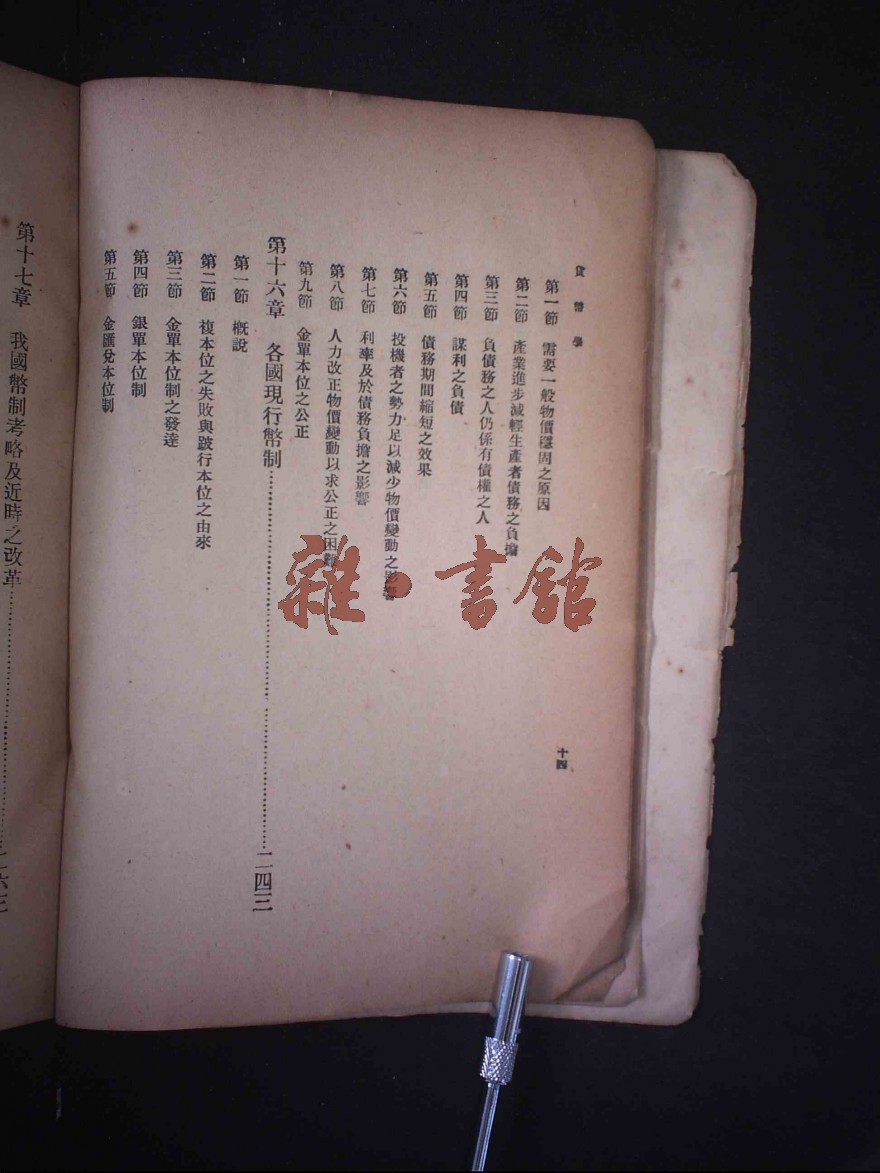 貨幣學
十四
第一節 需要一般物價穩固之原因
第二節 產業進步減輕生產者債務之負擔
第三節 負債務之人仍係有債權之人
第四節 謀利之負債
第五節 債務期間縮短之效果
第六節 投機者之勢力足以減少物價變動之影響
第七節 利率及於債務負擔之影響
第八節 人力改正物價變動以求公正之困難
第九節 金單本位之公正
第十六章 各國現行幣制……二四三
第一節 概說
第二節 複本位之失敗與跛行本位之由來
第三節 金單本位制之發達
第四節 銀單本位制
第五節 金匯兌本位制
第十七章 我國幣制考略及近時之改革……二六三
雜·書館